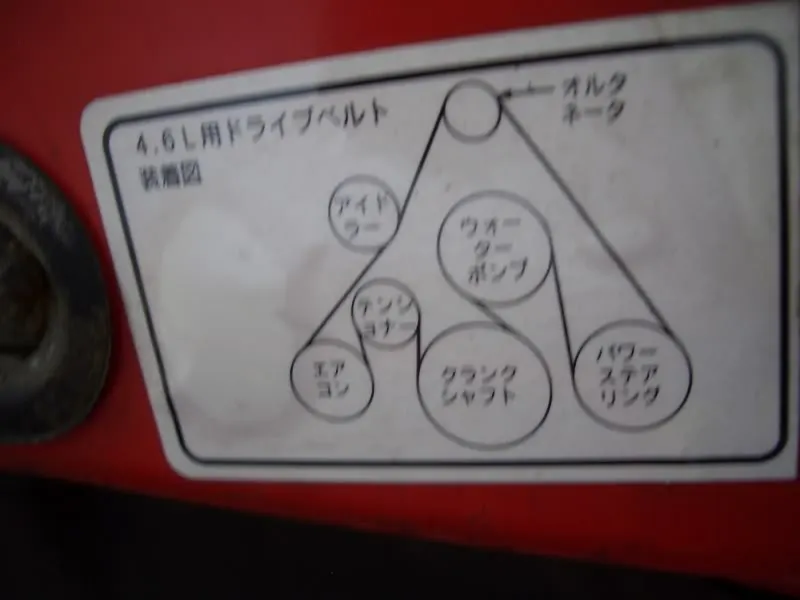 4.6L用ドライブベルト
装着図
オルタ
ネータ
アイド
ラー
ウォー
ター
ポンプ
テンシ
ョナー
エア
コン
クランク
シャフト
パワー
ステア
リング